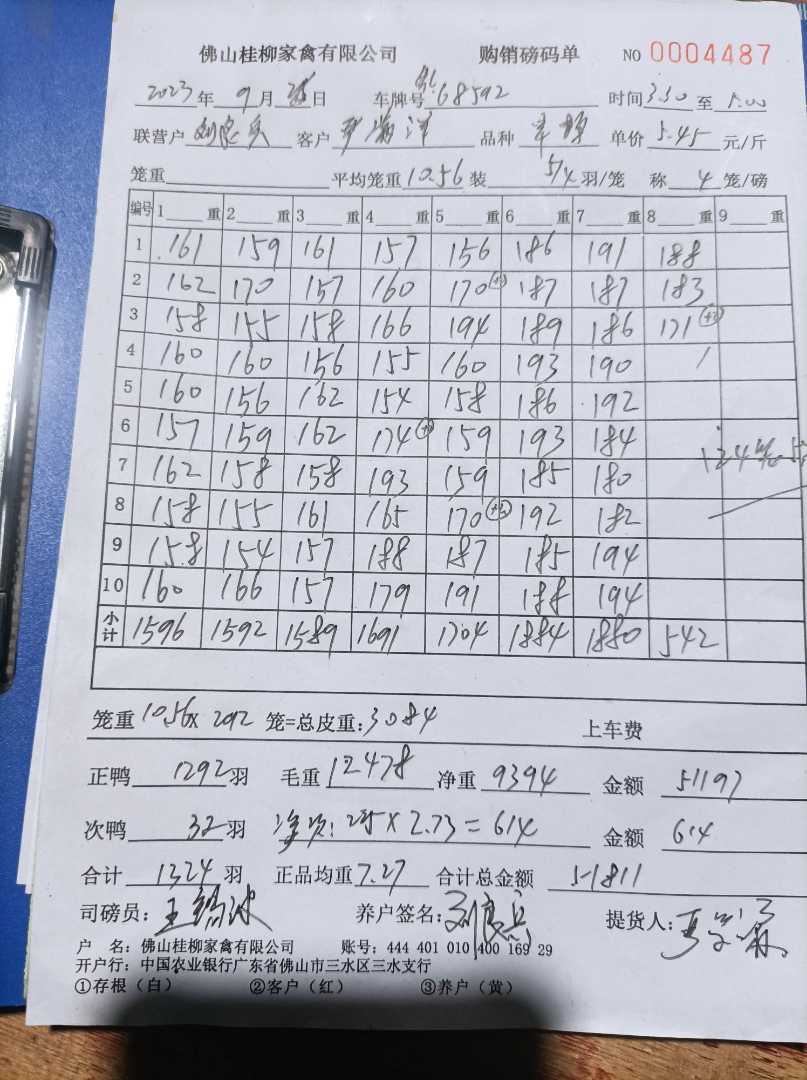 佛山桂柳家禽有限公司 购销磅码单 NO 0004487
2023年 9月 日 车牌号 68592 时间 3.50 至 5.00
联营户 客户 品种 单价 5.45 元/斤
笼重 平均笼重 10.56 装 5/4 羽/笼 称 4 笼/磅
编号 1 重 2 重 3 重 4 重 5 重 6 重 7 重 8 重 9 重
1 161 159 161 157 156 186 191 188
2 162 170 157 160 170 187 187 183
3 158 155 158 166 194 189 186 171
4 160 160 156 155 160 193 190
5 160 156 162 154 158 186 192
6 157 159 162 174 159 193 184
7 162 158 158 193 159 185 180
8 158 155 161 165 170 192 182
9 158 154 157 188 187 185 194
10 160 166 157 179 191 188 194
小计 1596 1592 1589 1691 1704 1884 1880 542
笼重 10.56 x 292 笼=总皮重: 3084 上车费
正鸭 1292 羽 毛重 12478 净重 9394 金额 51197
次鸭 32 羽 X 2.73 = 614 金额 614
合计 1324 羽 正品均重 7.27 合计总金额 51811
司磅员: 养户签名: 提货人:
户 名: 佛山桂柳家禽有限公司 账号: 444 401 010 400 169 29
开户行: 中国农业银行广东省佛山市三水区三水支行
①存根(白) ②客户(红) ③养户(黄)